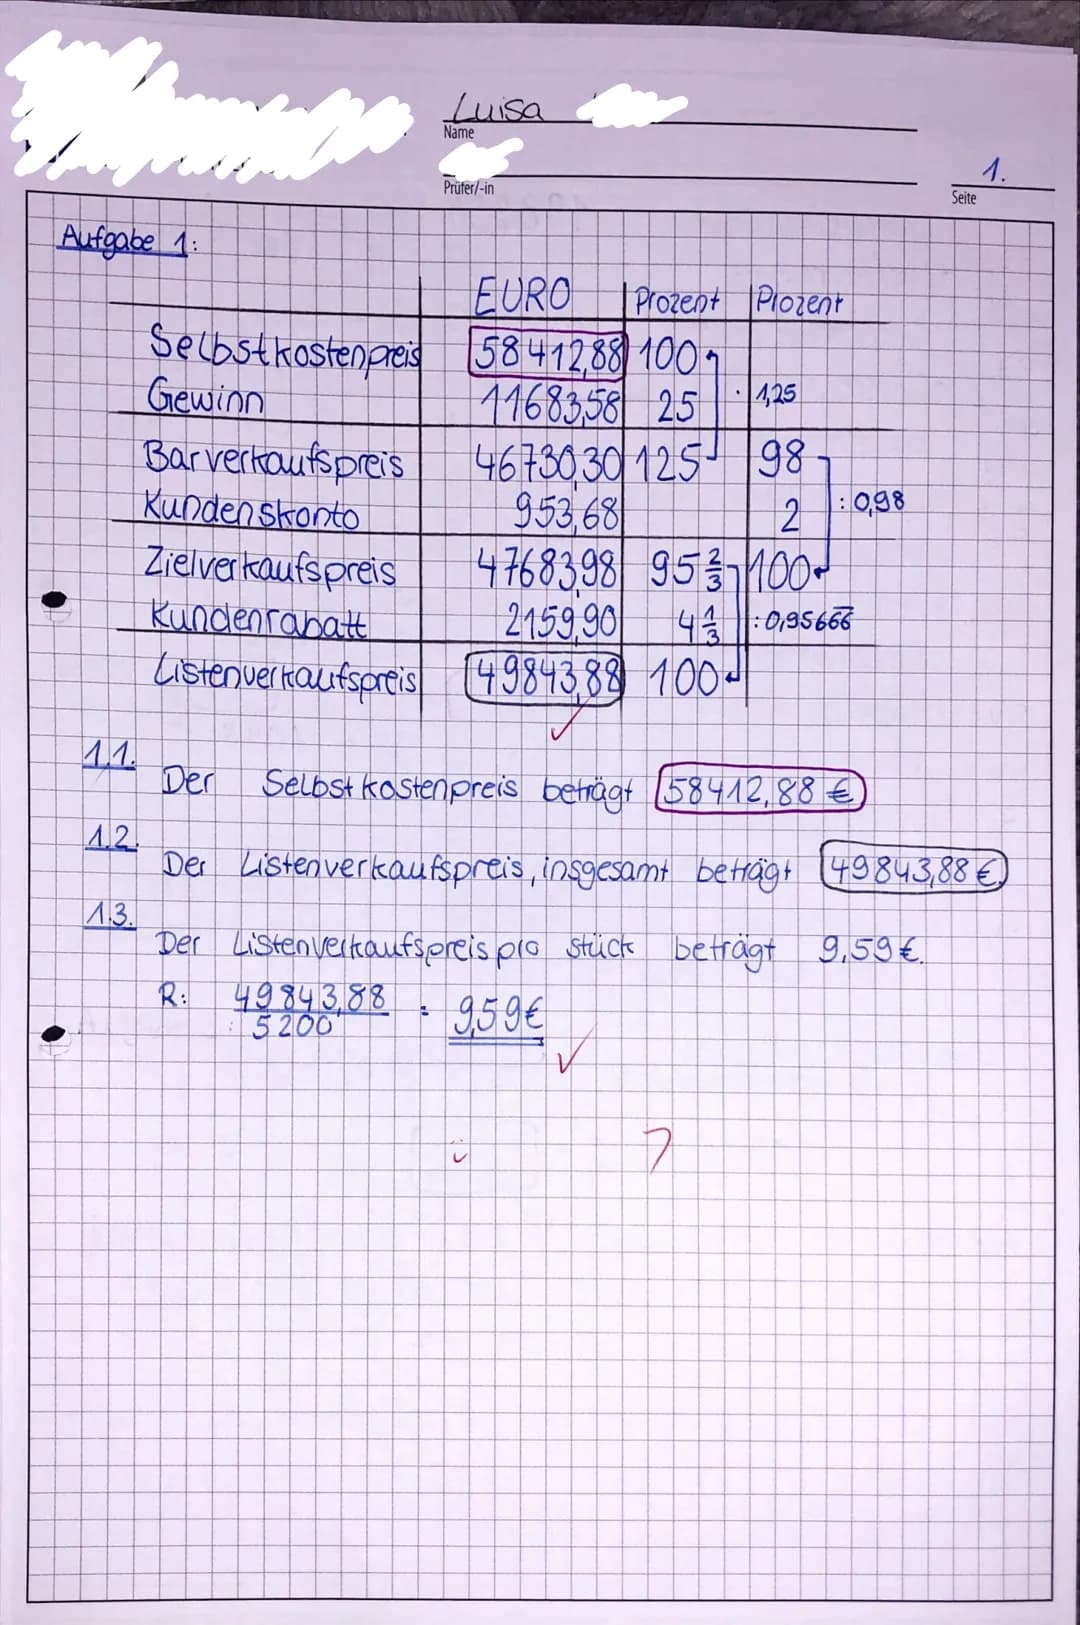 Luisa
Name
Prüfer/-in
1.
Seite
Aufgabe 1:
EURO Prozent Prozent
Selbstkostenpreis 58412,88 100
Gewinn 11683,58 25 · 1,25
Barverkaufspreis 46730,30 125 98
Kundenskonto 953,68 2 : 0,98
Zielverkaufspreis 47683,98 95 2/3 100
Kundenrabatt 2159,90 4 1/3 : 0,95666
Listenverkaufspreis 49843,88 100
1.1.
Der Selbstkostenpreis beträgt 58412,88 €
1.2.
Der Listenverkaufspreis, insgesamt beträgt 49843,88 €
1.3.
Der Listenverkaufspreis pro stück beträgt 9,59 €.
R: 49843,88 / 5200 = 9,59€
7